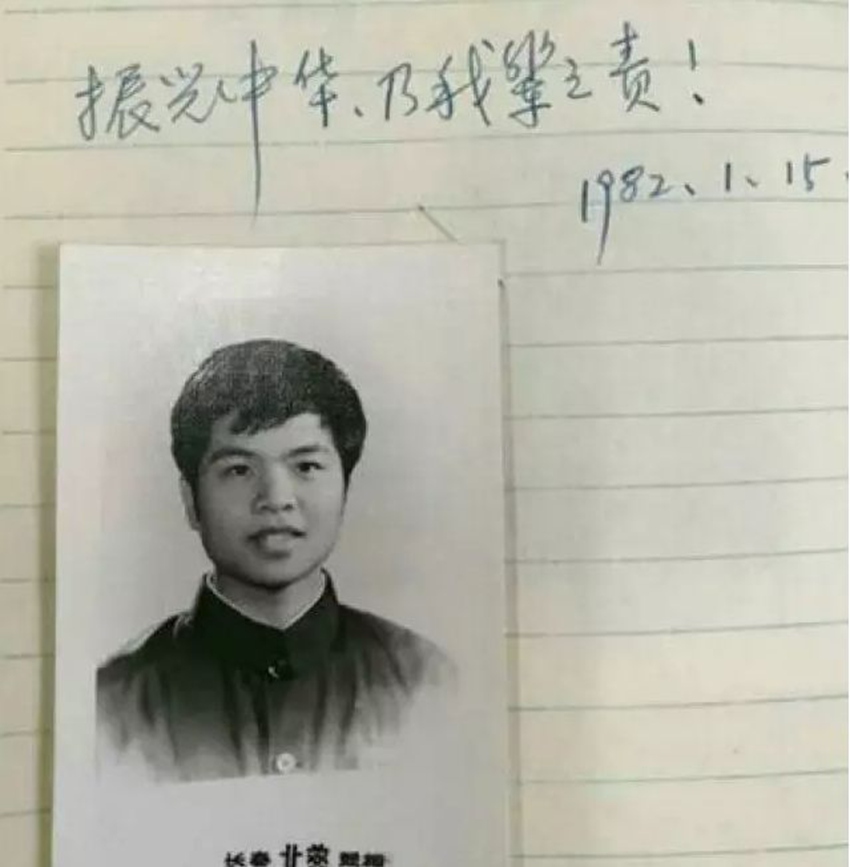 振兴中华、乃我辈之责！
1982、1、15.
长春